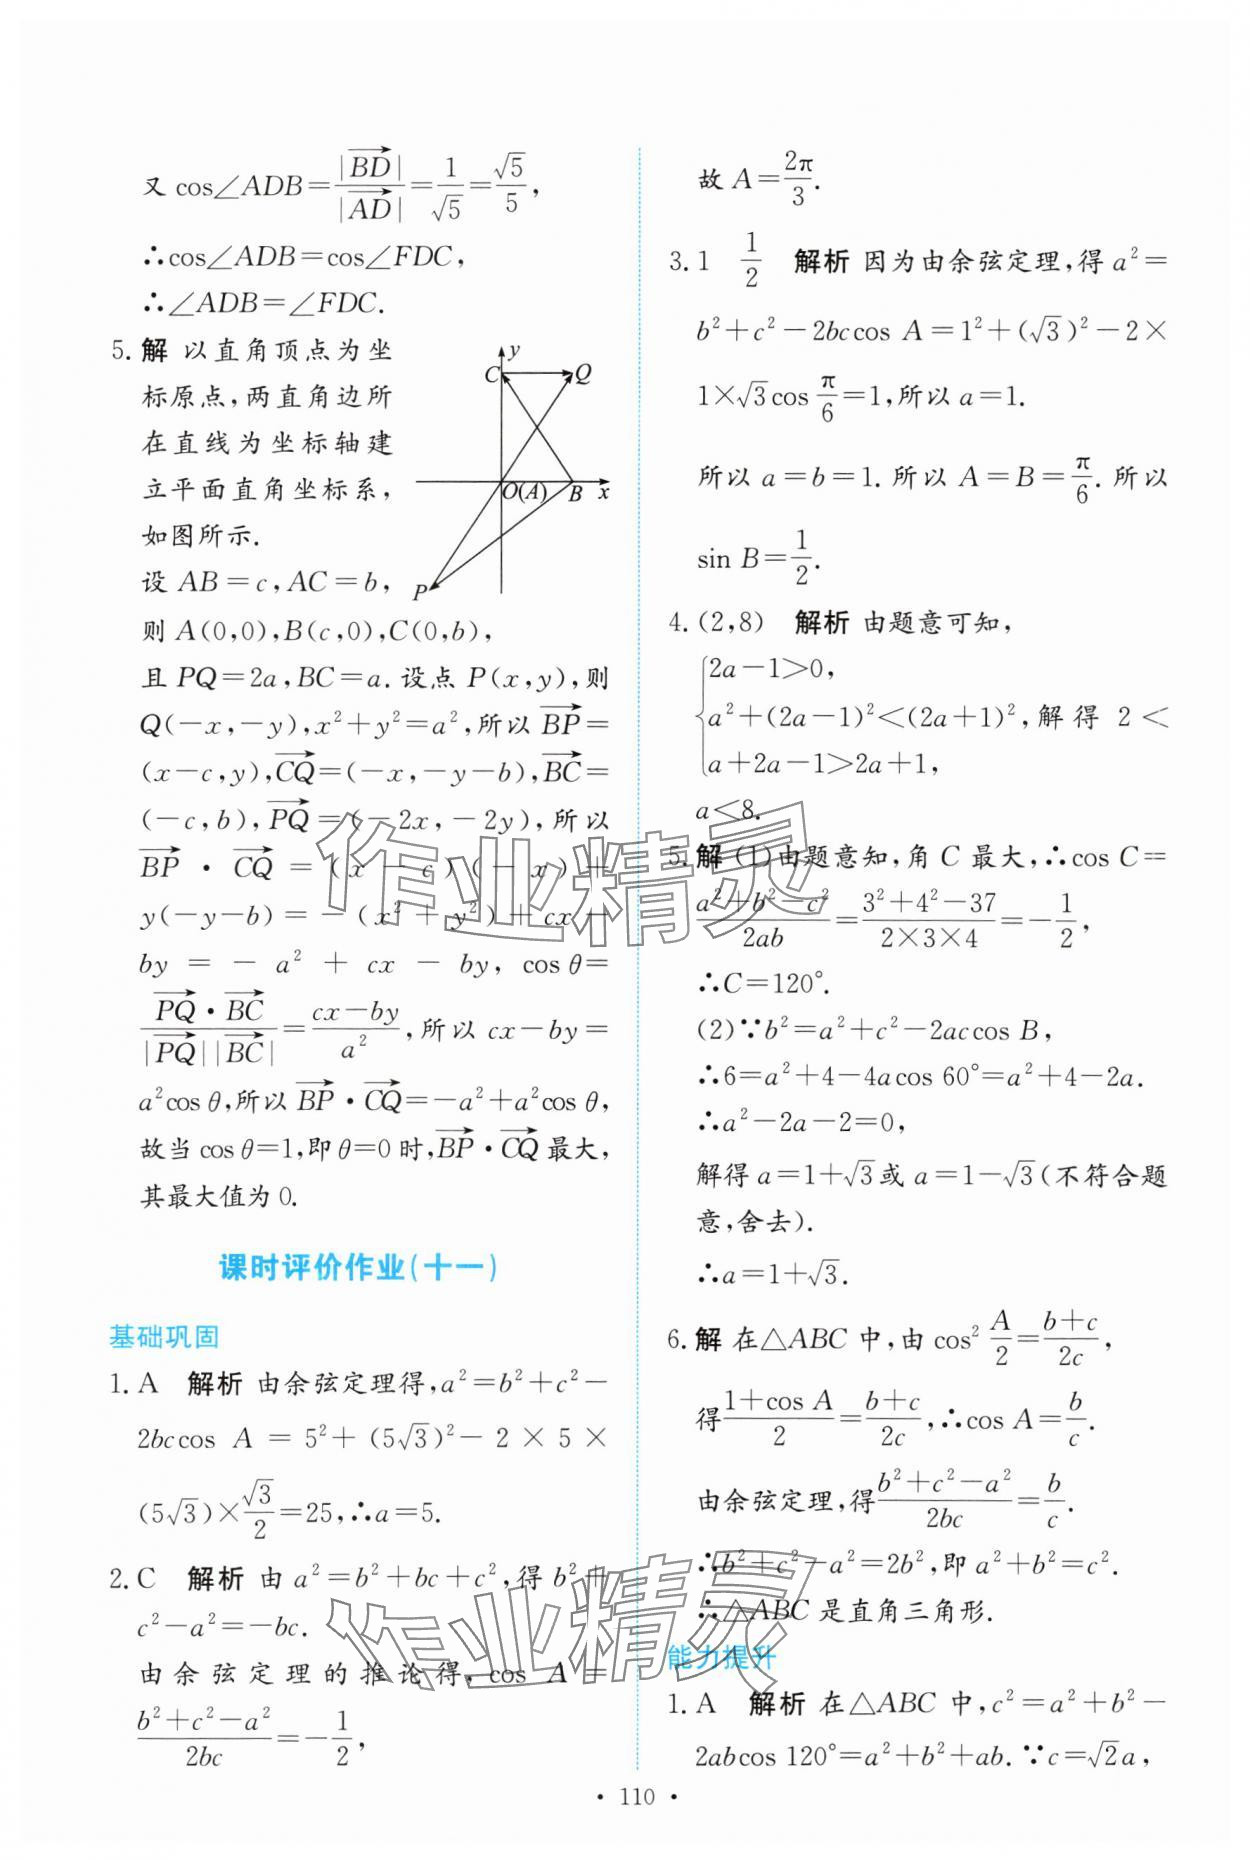 又 cos∠ADB=|BD|/|AD|=1/√5=√5/5,
∴cos∠ADB=cos∠FDC,
∴∠ADB=∠FDC.
5. 解 以直角顶点为坐
标原点,两直角边所
在直线为坐标轴建
立平面直角坐标系,
如图所示.
y
C
Q
O(A)
B
x
P
设 AB=c,AC=b,
则 A(0,0),B(c,0),C(0,b),
且 PQ=2a,BC=a. 设点 P(x,y),则
Q(-x,-y),x²+y²=a²,所以 BP=
(x-c,y),CQ=(-x,-y-b),BC=
(-c,b),PQ=(-2x,-2y),所以
BP·CQ=(x-c)(-x)+
y(-y-b)=-(x²+y²)+cx-
by=-a²+cx-by, cos θ=
PQ·BC/|PQ||BC|=(cx-by)/a²,所以 cx-by=
a²cos θ,所以 BP·CQ=-a²+a²cos θ,
故当 cos θ=1,即 θ=0 时,BP·CQ 最大,
其最大值为 0.
课时评价作业(十一)
基础巩固
1. A 解析 由余弦定理得,a²=b²+c²-
2bccos A=5²+(5√3)²-2×5×
(5√3)×√3/2=25,∴a=5.
2. C 解析 由 a²=b²+bc+c²,得 b²+
c²-a²=-bc.
由余弦定理的推论得,cos A=
(b²+c²-a²)/2bc=-1/2,
故 A=2π/3.
3. 1 1/2 解析 因为由余弦定理,得 a²=
b²+c²-2bccos A=1²+(√3)²-2×
1×√3cos π/6=1,所以 a=1.
所以 a=b=1. 所以 A=B=π/6. 所以
sin B=1/2.
4. (2,8) 解析 由题意可知,
2a-1>0,
a²+(2a-1)²<(2a+1)²,解得 2<
a+2a-1>2a+1,
a<8.
5. 解 (1)由题意知,角 C 最大,∴cos C=
(a²+b²-c²)/2ab=(3²+4²-37)/(2×3×4)=-1/2,
∴C=120°.
(2)∵b²=a²+c²-2accos B,
∴6=a²+4-4acos 60°=a²+4-2a.
∴a²-2a-2=0,
解得 a=1+√3或 a=1-√3(不符合题
意,舍去).
∴a=1+√3.
6. 解 在△ABC 中,由 cos² A/2=(b+c)/2c,
得(1+cos A)/2=(b+c)/2c,∴cos A=b/c.
由余弦定理,得(b²+c²-a²)/2bc=b/c.
∴b²+c²-a²=2b²,即 a²+b²=c².
∴△ABC 是直角三角形.
能力提升
1. A 解析 在△ABC 中,c²=a²+b²-
2abcos 120°=a²+b²+ab. ∵c=√2a,
作业精灵
作业精灵
· 110 ·